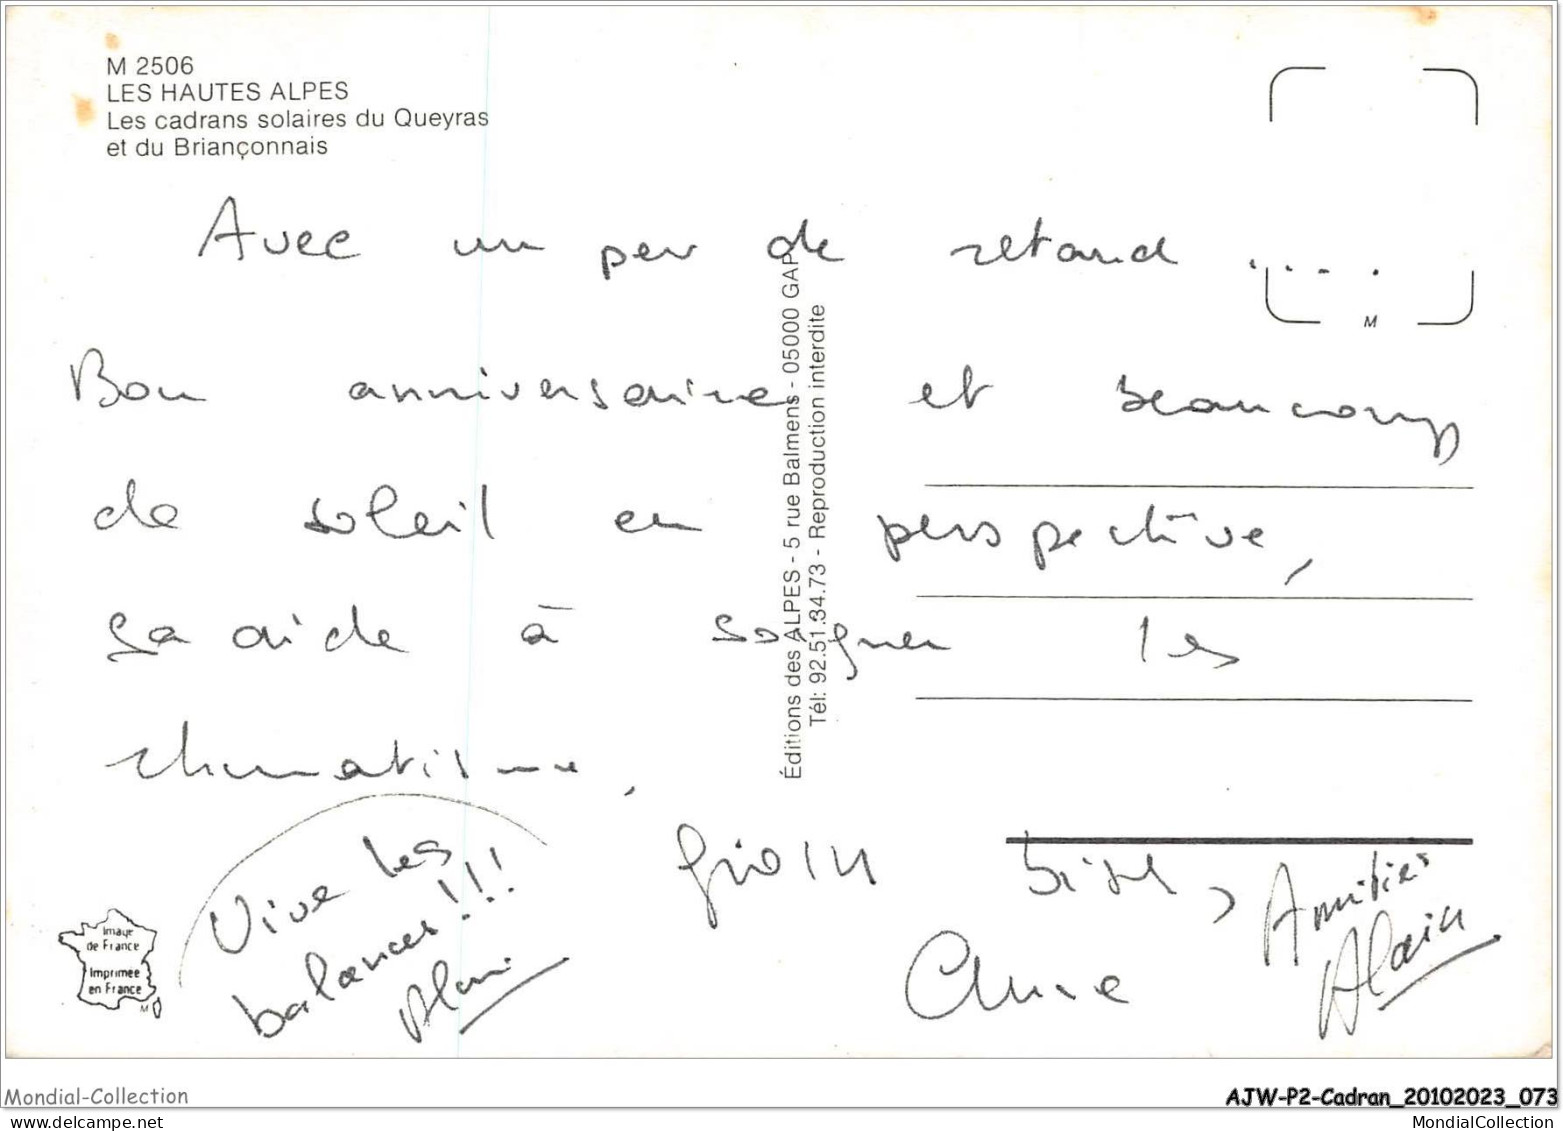 M 2506
LES HAUTES ALPES
Les cadrans solaires du Queyras
et du Briançonnais
Avec un peu de retard .....
M
Bon anniversaire et beaucoup
de soleil en perspective,
ça aide à soigner les
rhumatisme.
Éditions des ALPES - 5 rue Balmens - 05000 GAP
Tél: 92.51.34.73 - Reproduction interdite
Vive les
balances!!!
Alain
Gros
Anne
Amitiés
Alain
Image
de France
Imprimée
en France
M
Mondial-Collection
AJW-P2-Cadran_20102023_073
MondialCollection